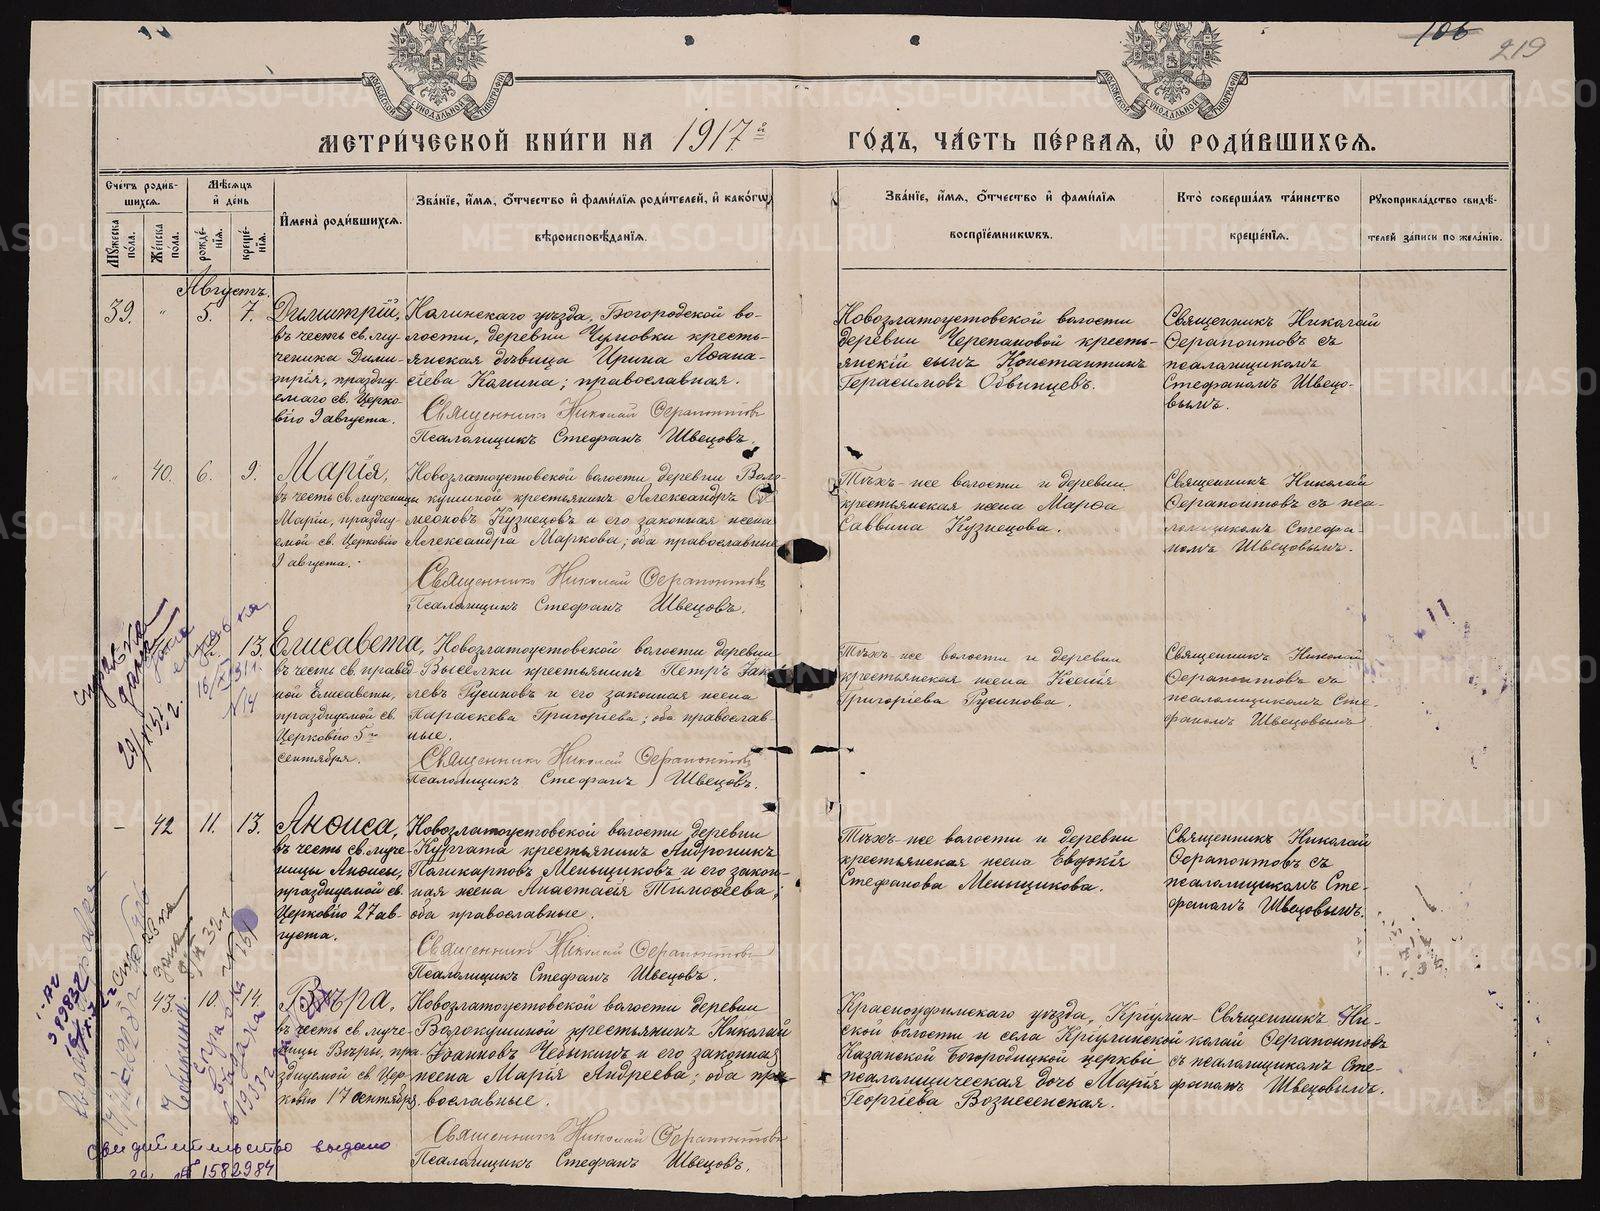 106
219
МЕТРИ́ЧЕСКОЙ КНИ́ГИ НА 1917й ГО́ДЪ, ЧА́СТЬ ПЕ́РВАЯ, Ѡ҆ РОДИ́ВШИХСЯ.
Счетъ роди́в-
шихся.
Мѣсяцъ
и҆ день
И҆мена̀ роди́вшихся.
Зва́нїе, и҆́мя, ѻ҆́тчество и҆ фами́лїя роди́телей, и҆ како́гѡ
вѣроисповѣ́данїя.
Зва́нїе, и҆́мя, ѻ҆́тчество и҆ фами́лїя
воспрїе́мникѡвъ.
Кто̀ соверша́лъ та́инство
креще́нїя.
Рукоприкла́дство свидѣ́-
телей за́писи по жела́нїю.
Мꙋ́жеска по́ла.
Же́нска по́ла.
рожде́-нїя.
креще́-нїя.
Августъ.
39.
"
5.
7.
Димитрій,
въ честь св. му-
ченика Дими-
трія, праздну
емаго св. Церко-
вію 9 августа.
уѣзда, Богородской во-
лости, деревни Чумовки кресть-
янская дѣвица Ирина Аѳана-
сіева Качина; православная.
Священникъ Николай Ѳерапонтовъ
Псаломщикъ Стефанъ Швецовъ.
Новозлатоустовской волости
деревни Черепановой кресть-
янскій сынъ Константинъ
Герасимовъ Обвинцевъ.
Священникъ Николай
Ѳерапонтовъ съ
псаломщикомъ
Стефаномъ Швецо-
вымъ.
"
40.
6.
9.
Марія,
въ честь св. мученицы
Маріи, праздну-
емой св. Церковію
9 августа.
Новозлатоустовской волости деревни Воло-
кушиной крестьянинъ Александръ Си
меоновъ Кузнецовъ и его законная жена
Александра Маркова; оба православные
Священникъ Николай Ѳерапонтовъ
Псаломщикъ Стефанъ Швецовъ.
Тѣхъ-же волости и деревни
крестьянская жена Марѳа
Саввина Кузнецова.
Священникъ Николай
Ѳерапонтовъ съ пса-
ломщикомъ Стефа-
номъ Швецовымъ.
13.
Елисавета,
въ честь св. правед
ной Елисаветы,
празднуемой св.
Церковію 5го
сентября.
Новозлатоустовской волости деревни
Выселки крестьянинъ Петръ Іак
левъ Русиновъ и его законная жена
Параскева Григоріева; оба православ-
ные.
Священникъ Николай Ѳерапонтовъ
Псаломщикъ Стефанъ Швецовъ.
Тѣхъ-же волости и деревни
крестьянская жена Ксенія
Григоріева Русинова.
Священникъ Николай
Ѳерапонтовъ съ
псаломщикомъ Сте-
фаномъ Швецовымъ
справка
дана
-
42
11.
13.
Анѳиса,
въ честь св. муче-
ницы Анѳисы,
празднуемой св.
Церковію 27 ав-
густа.
Новозлатоустовской волости деревни
Кургата крестьянинъ Андроникъ
Поликарповъ Меньщиковъ и его закон-
ная жена Анастасія Тимоѳеева;
оба православные.
Священникъ Николай Ѳерапонтовъ
Псаломщикъ Стефанъ Швецовъ.
Тѣхъ-же волости и деревни
крестьянская жена Евдокія
Стефанова Меньщикова.
Священникъ Николай
Ѳерапонтовъ съ
псаломщикомъ Сте-
фаномъ Швецовымъ.
43.
10.
14.
Вѣра,
въ честь св. муче-
ницы Вѣры, пра-
зднуемой св. Цер-
ковію 17 сентября.
Новозлатоустовской волости деревни
Волокушиной крестьянинъ Николай
Іоанновъ Чебыкинъ и его законная
жена Марія Андреева; оба пра-
вославные.
Священникъ Николай Ѳерапонтовъ
Псаломщикъ Стефанъ Швецовъ.
Красноуфимскаго уѣзда, Кріулин-
ской волости и села Кріулинской
Казанской Богородицкой церкви
псаломщическая дочь Марія
Георгіева Вознесенская.
Священникъ Ни-
колай Ѳерапонтовъ
съ псаломщикомъ Сте-
фаномъ Швецовымъ.
свидѣтельство выдано
№ 1582984
METRIKI.GASO-URAL.RU